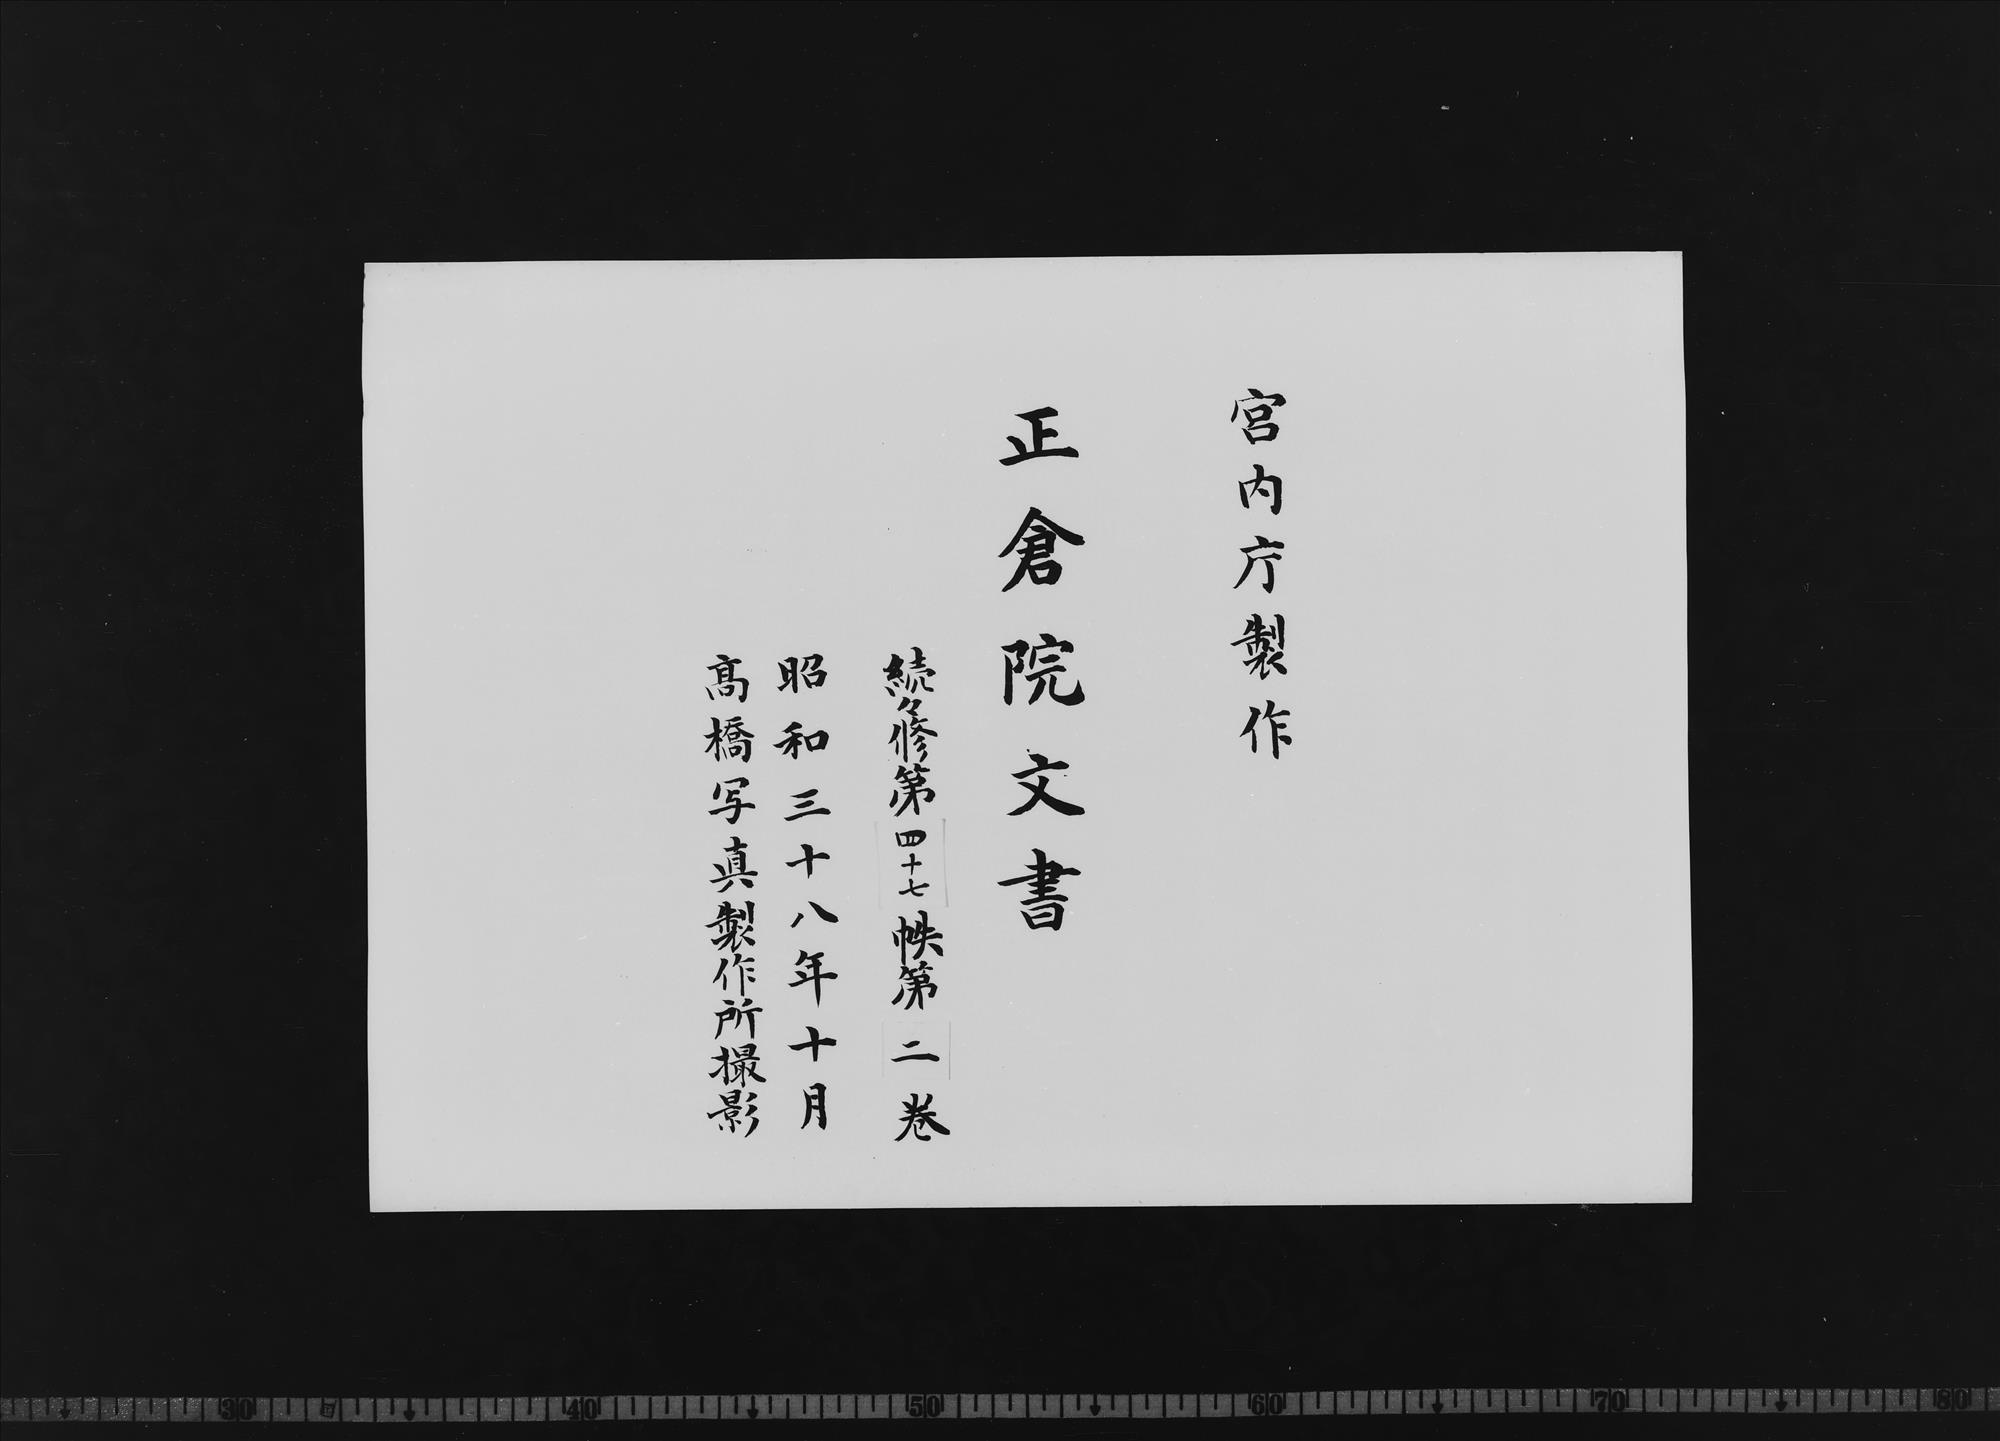 宮内庁製作
正倉院文書
続々修第四十七帙第二巻
昭和三十八年十月
髙橋写真製作所撮影
30 40 50 60 70 80